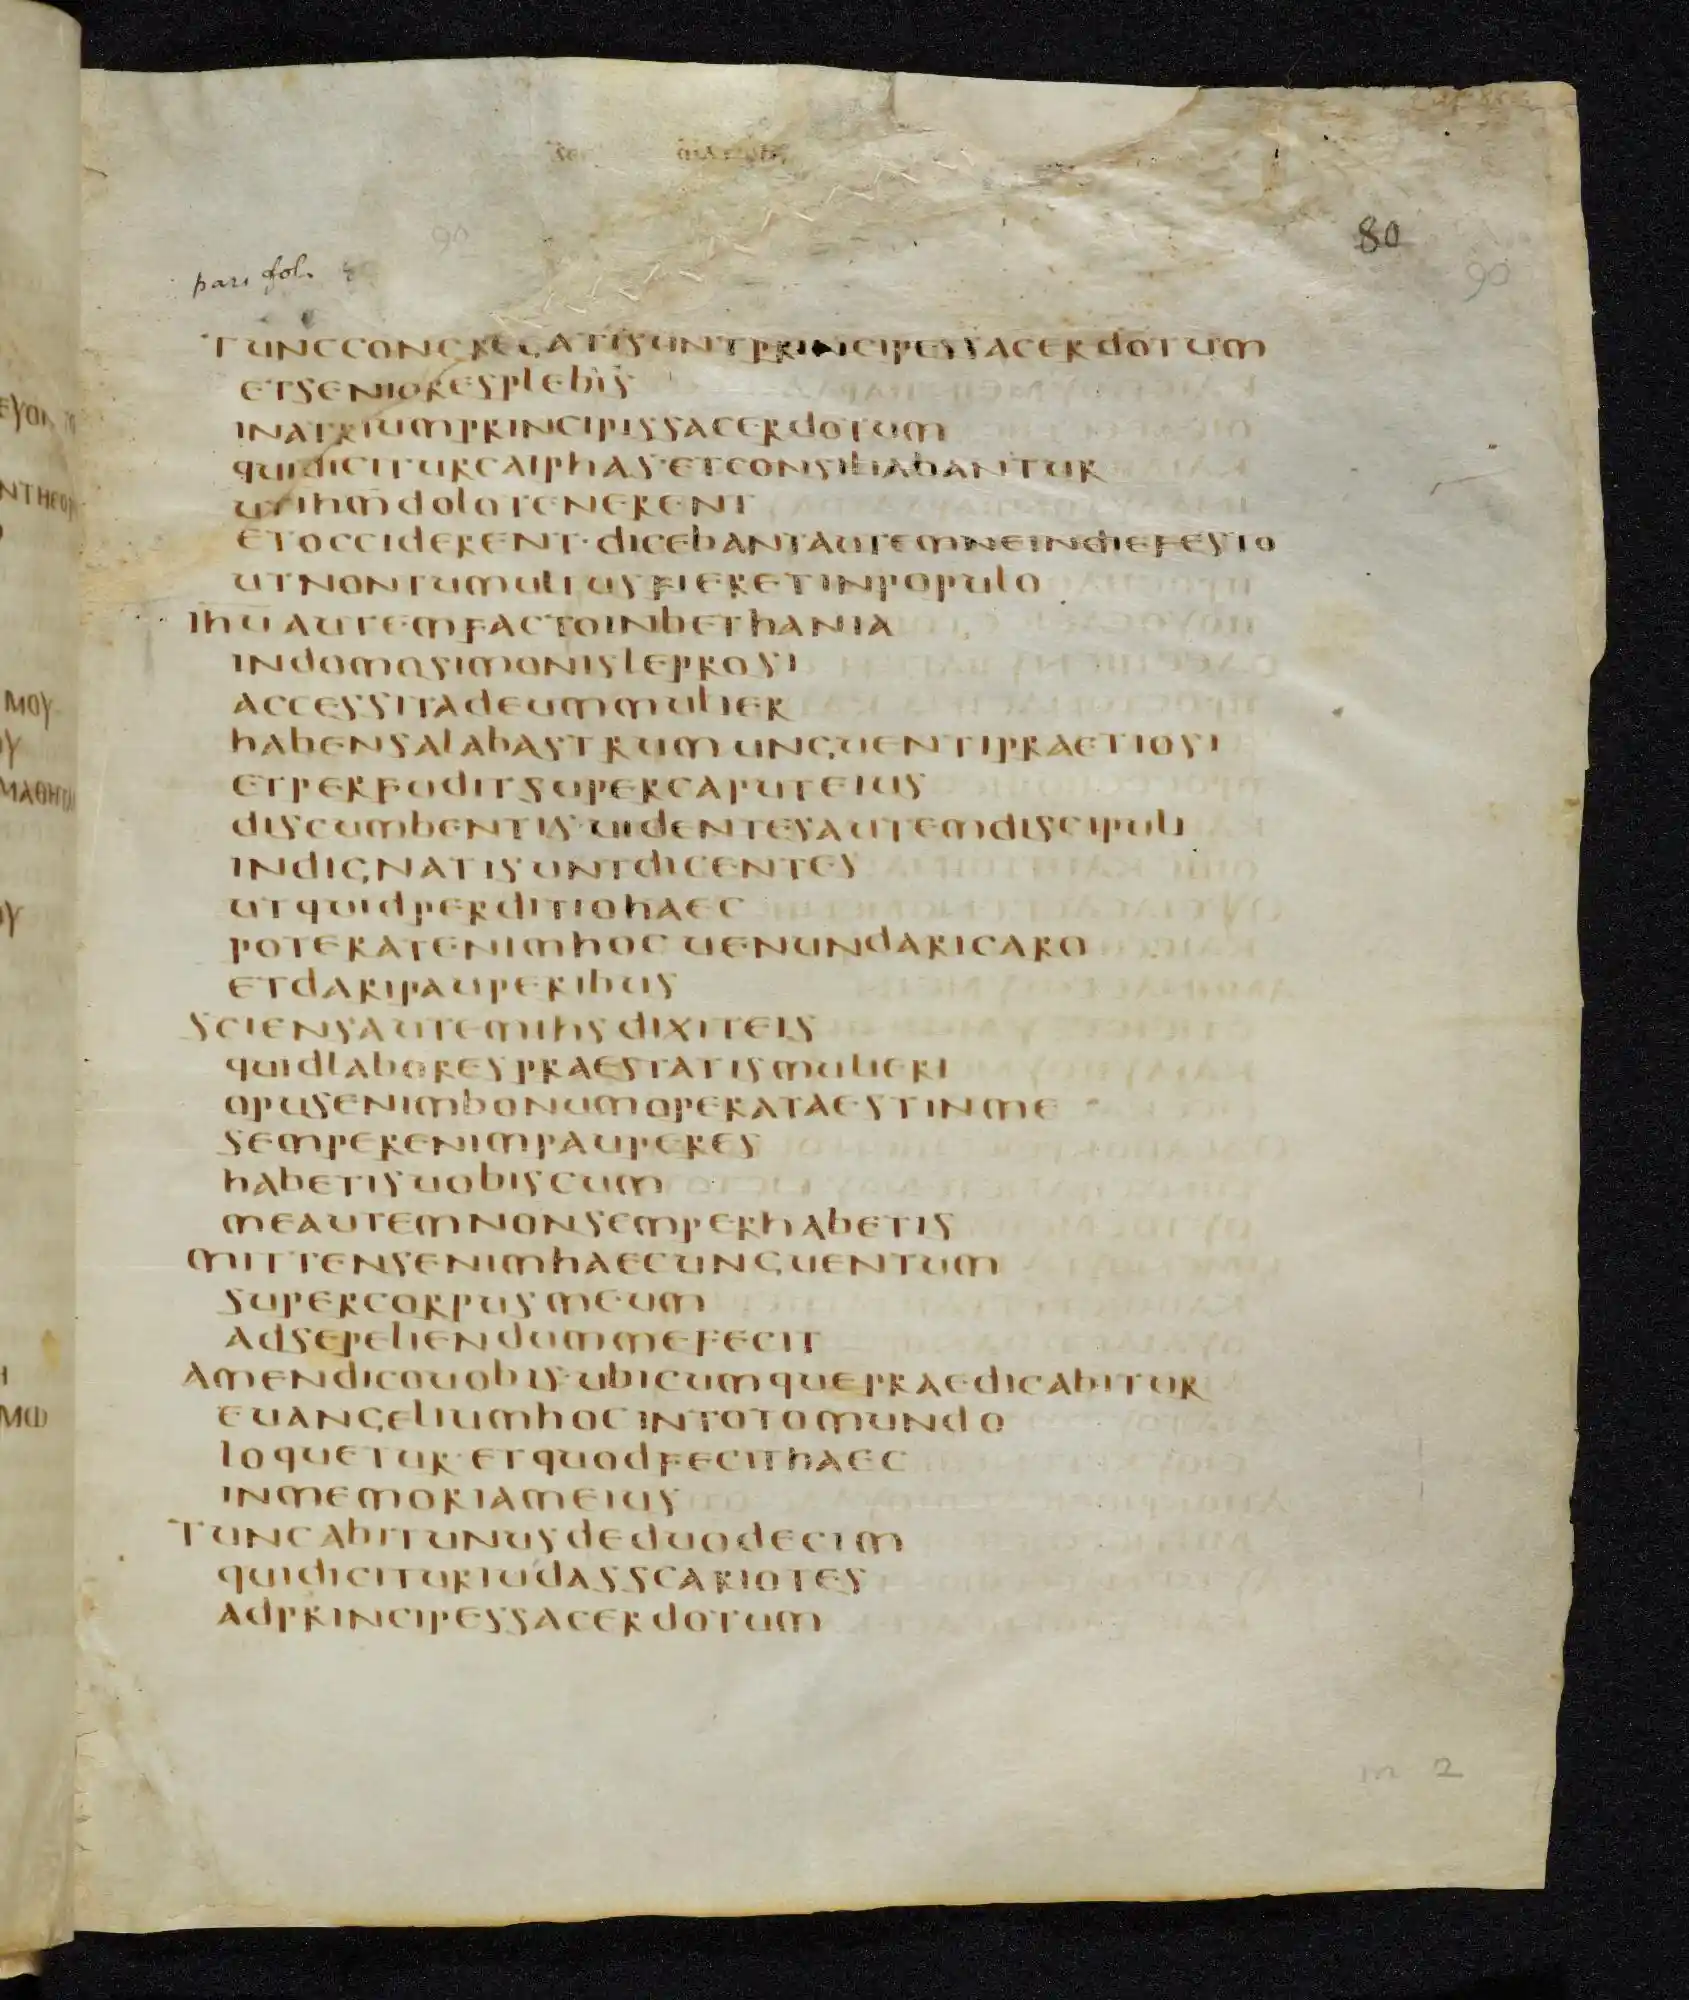 80
90
90
pari fol.
TUNCCONGREGATISUNTPRINCIPESSACERDOTUM
ETSENIORESPLEBIS
INATRIUMPRINCIPISSACERDOTUM
QUIDICITURCAIPHAS·ETCONSILIABANTUR
UTIHM̅DOLOTENERENT
ETOCCIDERENT·DICEBANTAUTEMNEINDIEFESTO
UTNONTUMULTUSFIERETINPOPULO
IHU̅AUTEMFACTOINBETHANIA
INDOMOSIMONISLEPROSI
ACCESSITADEUMMULIER
HABENSALABASTRUMUNGUENTIPRAETIOSI
ETPERFUDITSUPERCAPUTEIUS
DISCUMBENTIS·UIDENTESAUTEMDISCIPULI
INDIGNATISUNTDICENTES
UTQUIDPERDITIOHAEC
POTERATENIMHOCUENUNDARICARO
ETDARIPAUPERIBUS
SCIENSAUTEMIHSDIXITEIS
QUIDLABORESPRAESTATISMULIERI
OPUSENIMBONUMOPERATAESTINME
SEMPERENIMPAUPERES
HABETISUOBISCUM
MEAUTEMNONSEMPERHABETIS
MITTENSENIMHAECUNGUENTUM
SUPERCORPUSMEUM
ADSEPELIENDUMMEFECIT
AMENDICOUOBIS·UBICUMQUEPRAEDICABITUR
EUANGELIUMHOCINTOTOMUNDO
LOQUETUR·ETQUODFECITHAEC
INMEMORIAMEIUS
TUNCABITUNUSDEDUODECIM
QUIDICITURIUDASSCARIOTES
ADPRINCIPESSACERDOTUM
m 2